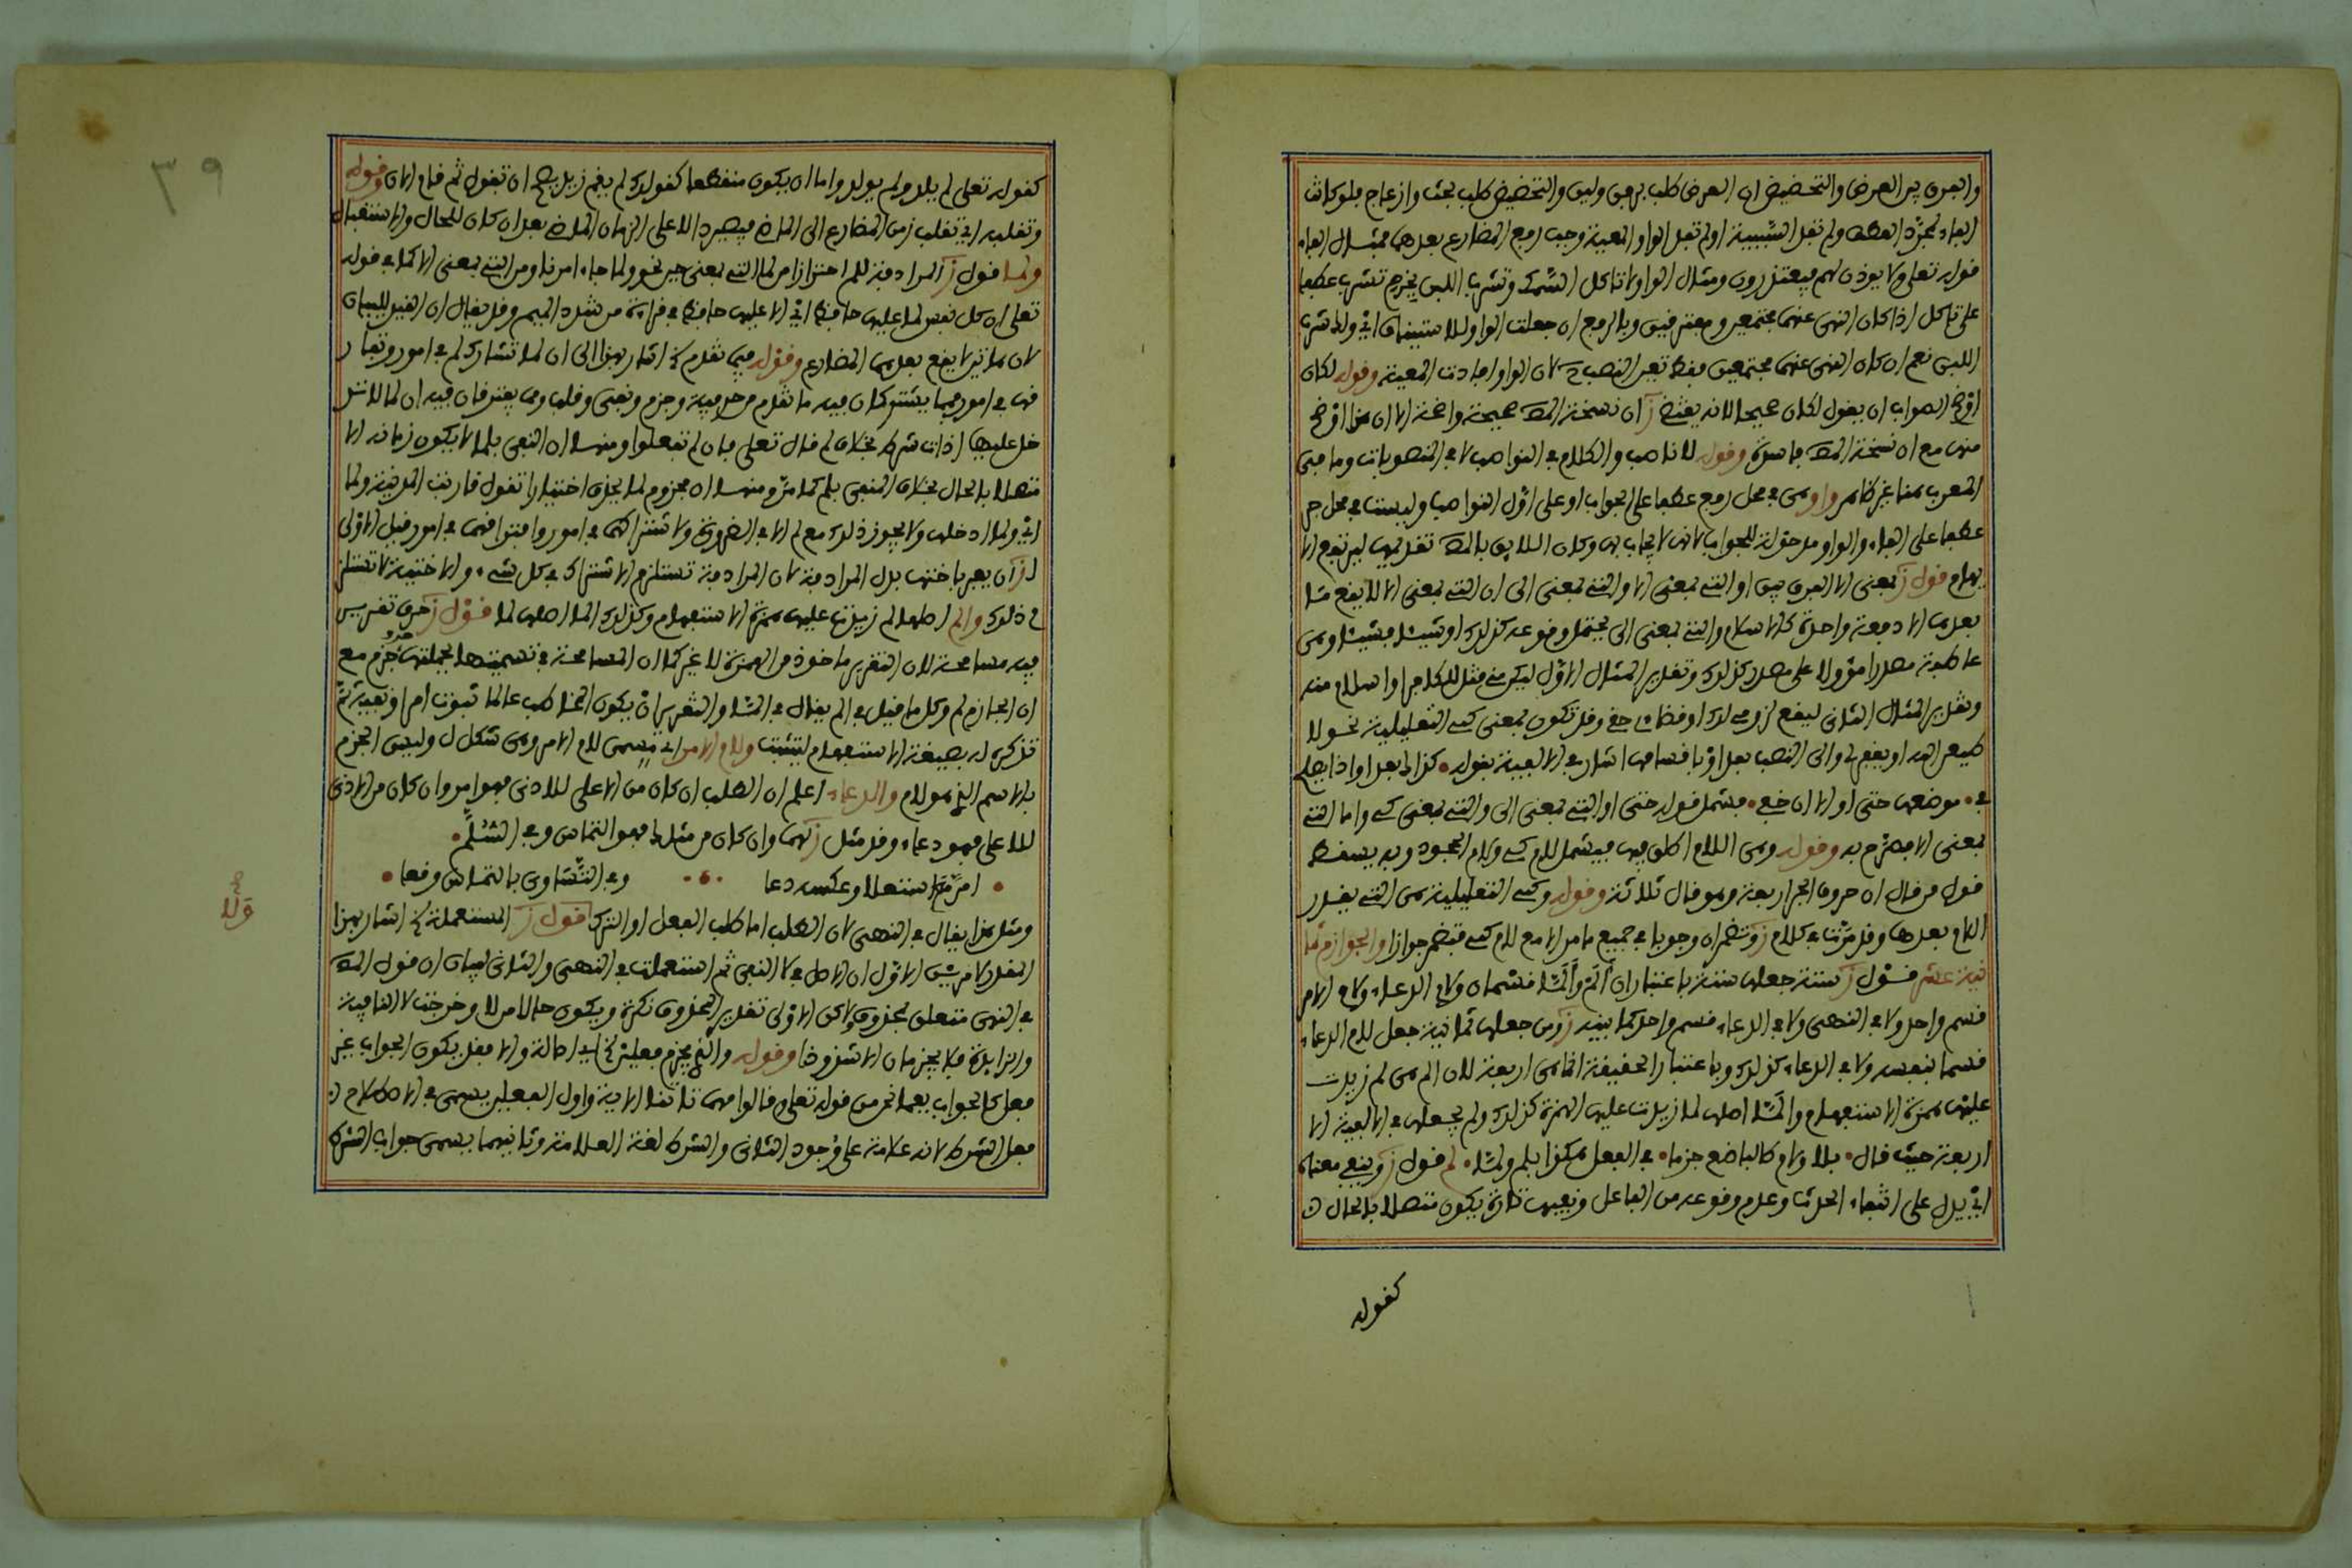 والفرق بين العرض والتحضيض ان العرض طلب برفق ولين والتحضيض طلب بحث وازعاج فلو كانت
الفاء لمجرد العطف ولم تفد السببية او لم تفد الواو المعية وجب رفع المضارع بعدهما فمثال الفاء
قوله تعلى ولا يوذن لهم فيعتذرون ومثال الواو لا تاكل السمك وتشرب اللبن بجزم تشرب عطفا
على تاكل اذا كان النهي عنهما مجتمعين ومفترقين وبالرفع ان جعلت الواو للاستيناف اي ولك شرب
اللبن نعم ان كان النهي عنهما مجتمعين فقط تعين النصب ح لان الواو افادت المعية وقوله لكان
اوضح الصواب ان يقول لكان صحيحا لانه يقتضي ز ان نسخة المص صحيحة واضحة الا ان هذا اوضح
منها مع ان نسخة المص فاسدة وقوله للناصب والكلام في النواصب لا في المنصوبات وما في
المعرب هنا غير ظاهر واو هي في محل رفع عطفا على الجواب او على اول النواصب وليست في محل جر
عطفا على الفاء والواو مدخولة للجواب لانها لا يجاب بها وكان اللايق بالمص تقديمها ليرتفع الا
يهام قول ز بمعنى الا الفرق بين او التي بمعنى الا والتي بمعنى الى ان التي بمعنى الا لا يقع ما
بعدها الا دفعة واحدة كالاسلام والتي بمعنى الى يحتمل وقوعه كذلك او شيئا فشيئا وهي
عاطفة مصدرا مؤولا على مصدر كذلك وتقدير المثال الاول ليكن مني قتل للكافر او اسلام منه
وتقدير المثال الثاني ليقع لزومي لك او قضاء حقي وقد تكون بمعنى كي التعليلية نحو لا
طيعن الله او يغفر لي والى النصب بعد او باقسامها اشار في الالفية بقوله كذاك بعد او اذا يصلح
في موضعها حتى او الا ان خفي فشمل قوله حتى او التي بمعنى الى والتي بمعنى كي واما التي
بمعنى الا فصرح به وقوله وهي اللام اطلق فيها فيشمل لام كي ولام الجحود وبه يسقط
قول من قال ان حروف الجر اربعة وهو قال ثلاثة وقوله وكي التعليلية هي التي يقدر
اللام بعدها وقد مرت في كلام ز وتضمر ان وجوبا في جميع ما مر الا مع لام كي فتضمر جوازا والجوازم ثما
نية عشر قول ز ستة جعلها ستة باعتبار ان الم والما قسمان ولام الدعاء ولام الامر
قسم واحد ولا في النهي ولا في الدعاء قسم واحد كما بينه ز ومن جعلها ثمانية جعل لام الدعاء
قسما بنفسه ولا في الدعاء كذلك وباعتبار الحقيقة انما هي اربعة لان الم هي لم زيدت
عليها همزة الاستفهام والما اصلها لما زيدت عليها الهمزة كذلك ولم يجعلها في الالفية الا
اربعة حيث قال بلا ولام طالبا ضع جزما في الفعل هكذا بلم ولما لم قول ز وينفي معناه
اي يدل على انتفاء الحدث وعدم وقوعه من الفاعل ونفيها تارة يكون متصلا بالحال
كقوله
٣٩
كقوله تعلى لم يلد ولم يولد واما ان يكون منقطعا كقولك لم يقم زيد يصح ان تقول ثم قام الان وقوله
وتقلبه اي تقلب زمن المضارع الى الماضي فيصير دالا على الزمان الماضي بعد ان كان للحال والاستقبال
ولما قول ز المرادفة للم احترازا من لما التي بمعنى حين نحو ولما جاء امرنا ومن التي بمعنى الا كما في قوله
تعلى ان كل نفس لما عليها حافظ اي الا عليها حافظ في قراءة من شدد الميم وقد يقال ان القيد للبيان
لان هاتين لا يقع بعدهما المضارع وقوله فيما تقدم اشار بهذا الى ان لما تشارك لم في امور وتفار
قها في امور فيما يشتركان فيه ما تقدم من حرفية وجزم ونفي وقلب ومما يفترقان فيه ان لما لا تد
خل عليها اداة شرط بخلاف لم قال تعلى فان لم تفعلوا ومنها ان النفي بلما لا يكون زمانه الا
متصلا بالحال بخلاف المنفي بلم كما مر ومنها ان مجزوم لما يحذف اختيارا تقول قاربت المدينة ولما
اي ولما ادخلها ولا يجوز ذلك مع لم الا في الضرورة ولاشتراكهما في امور وافتراقهما في امور قيل الاولى
لز ان يعبر باختها بدل المرادفة لان المرادفة تستلزم الاشتراك في كل شيء والاختية لا تستلز
م ذلك والم اصلها لم زيدت عليها همزة الاستفهام وكذلك الما اصلها لما قول ز حرف تقرير
فيه مسامحة لان التقرير ماخوذ من الهمزة لا غير كما ان المسامحة في تسميتها بجملتها حرف جزم مع
ان الجازم لم وكل ما قيل في الم يقال في الما والتقرير ان يكون المخاطب عالما ثبوت امر او نفيه ثم
تذكره له بصيغة الاستفهام ليتثبت ولام الامر اي مسمى لام الامر وهي شكل ل وليس الجزم
بالاسم الذي هو لام والدعاء اعلم ان الطلب ان كان من الاعلى للادنى فهو امر وان كان من الادنى
للاعلى فهو دعاء وقد مثل ز لهما وان كان من مثلك فهو التماس وفي السلم
امر مع استعلا وعكسه دعا وفي التساوي بالتماس وقعا
ومثل هذا يقال في النهي لان الطلب اما طلب الفعل او الترك قول ز المستعملة اشار بهذا
المقدر لامرين الاول ان الاصل في لا النفي ثم استعملت في النهي والثاني لبيان ان قول المص
في النهي متعلق بمحذوف ولاكن الاولى تقدير المحذوف نكرة ويكون حالا من لا وخرجت لا النافية
والزايدة فلا يجزمان الا شذوذا وقوله والذي يجزم فعلين اي اصالة والا فقد يكون الجواب غير
فعل كالجواب بمهما نحو من قوله تعلى وقالوا مهما تاتنا الاية واول الفعلين يسمى في الاصطلاح
فعل الشرط لانه علامة على وجود الثاني والشرط لغة العلامة وثانيهما يسمى جواب الشرط